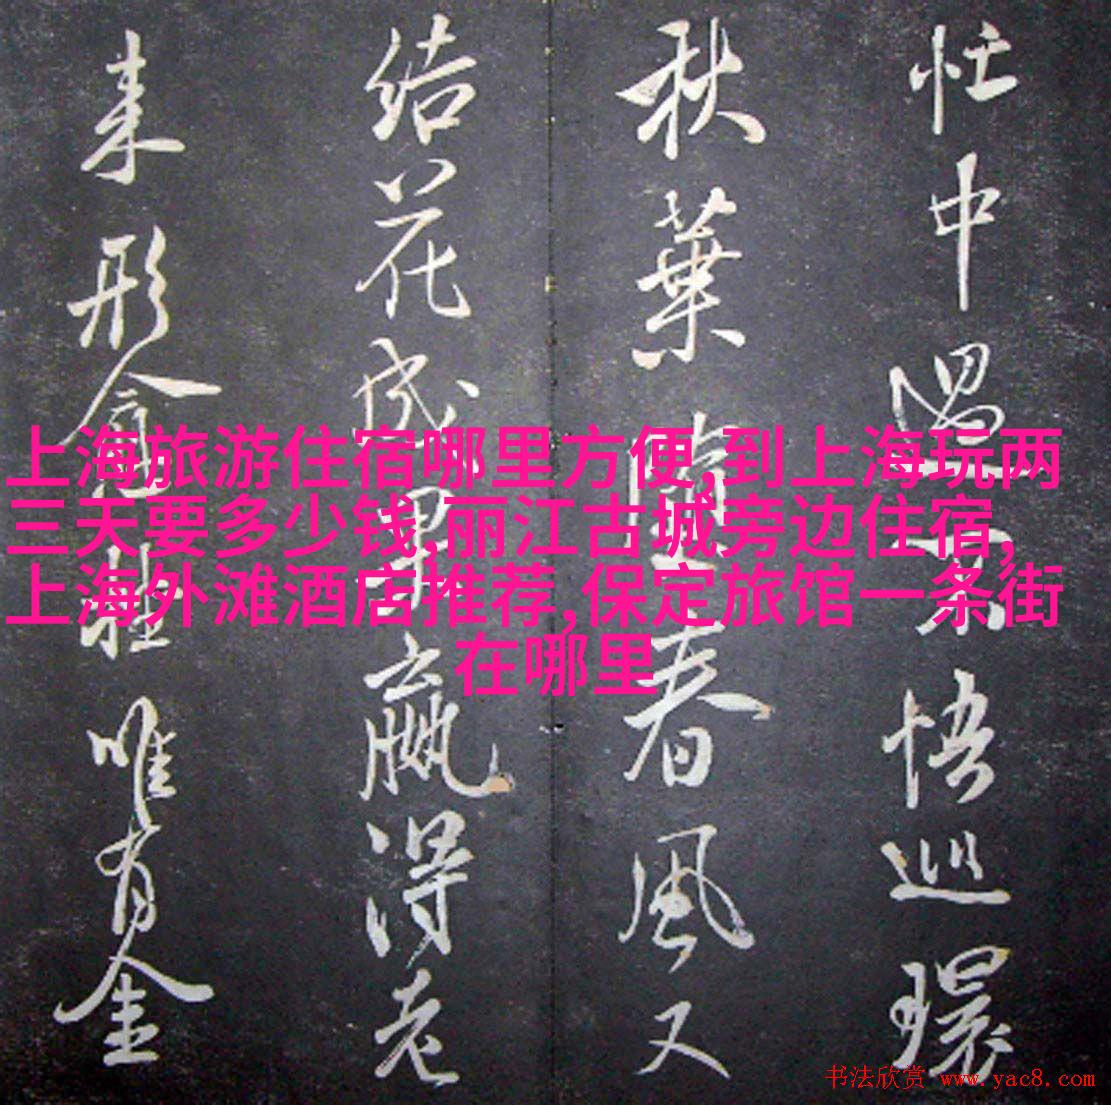 忙中悟巡環
秋葉春風又
结花成果贏得老
来形唯有金
上海旅游住宿哪里方便,到上海玩两
三天要多少钱,丽江古城旁边住宿,
上海外滩酒店推荐,保定旅馆一条街
在哪里
书法欣赏 www.yac8.com